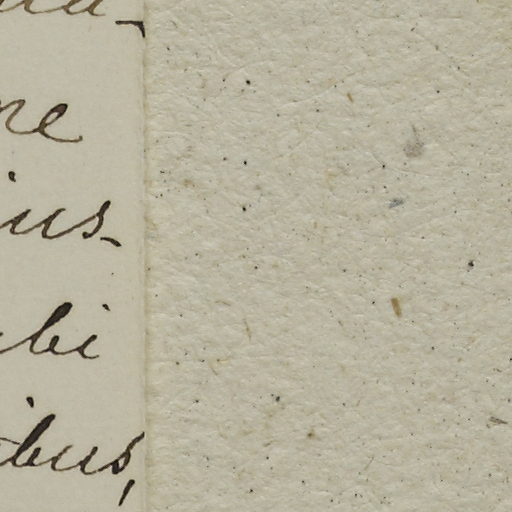 ne
ius-
bi
ibus,